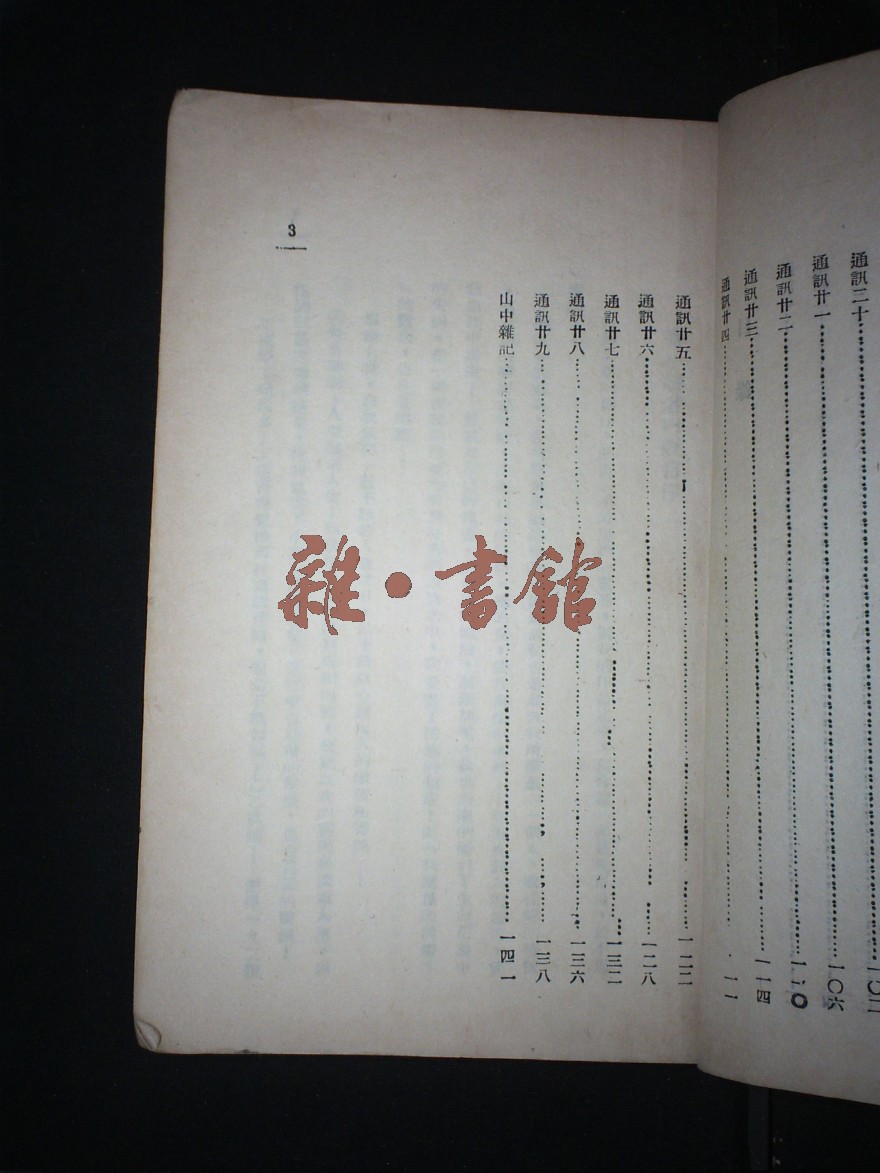 通訊二十⋯⋯一〇二
通訊廿一⋯⋯一〇六
通訊廿二⋯⋯一一〇
通訊廿三⋯⋯一一四
通訊廿四⋯⋯一一
通訊廿五⋯⋯一二二
通訊廿六⋯⋯一二八
通訊廿七⋯⋯一三二
通訊廿八⋯⋯一三六
通訊廿九⋯⋯一三八
山中雜記⋯⋯一四一
3
雜·書館